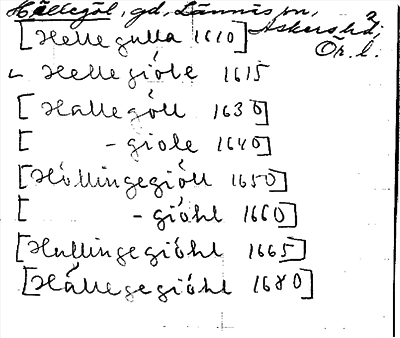 Hällegöl, gd, Lännäs sn,
Askers hd,
Ör. l.
[Hellegulla 1610]
Hellegiöle 1615
[Hällegöll 1630]
[ - giole 1640]
[Höllingegiöll 1650]
[ - giöhl 1660]
[Hällingegiöhl 1665]
[Hällegegiöhl 1680]